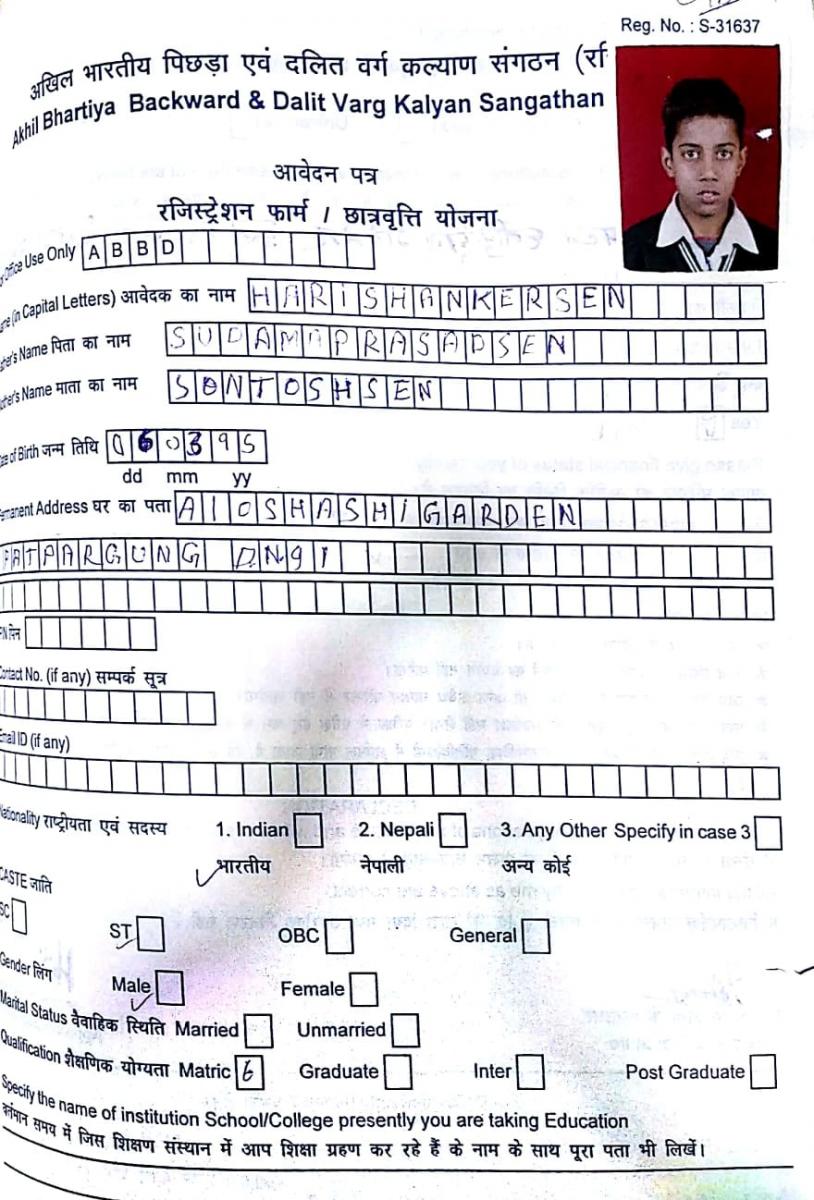 Reg. No. : S-31637
अखिल भारतीय पिछड़ा एवं दलित वर्ग कल्याण संगठन
Akhil Bhartiya Backward & Dalit Varg Kalyan Sangathan
आवेदन पत्र
रजिस्ट्रेशन फार्म / छात्रवृत्ति योजना
Office Use Only ABBD
(in Capital Letters) आवेदक का नाम HARISHANKERSEN
Name पिता का नाम SUDAMAPRASADSEN
Name माता का नाम SONTOSHSEN
of Birth जन्म तिथि 060395
dd mm yy
Address घर का पता A10SHASHIGARDEN
PATPARGUNG DN91
पिन
Contact No. (if any) सम्पर्क सूत्र
Email ID (if any)
Nationality राष्ट्रीयता एवं सदस्य 1. Indian 2. Nepali 3. Any Other Specify in case 3
भारतीय नेपाली अन्य कोई
CASTE जाति
SC ST OBC General
Gender लिंग
Male Female
Marital Status वैवाहिक स्थिति Married Unmarried
Qualification शैक्षणिक योग्यता Matric 6 Graduate Inter Post Graduate
Specify the name of institution School/College presently you are taking Education
वर्तमान समय में जिस शिक्षण संस्थान में आप शिक्षा ग्रहण कर रहे हैं के नाम के साथ पूरा पता भी लिखें।